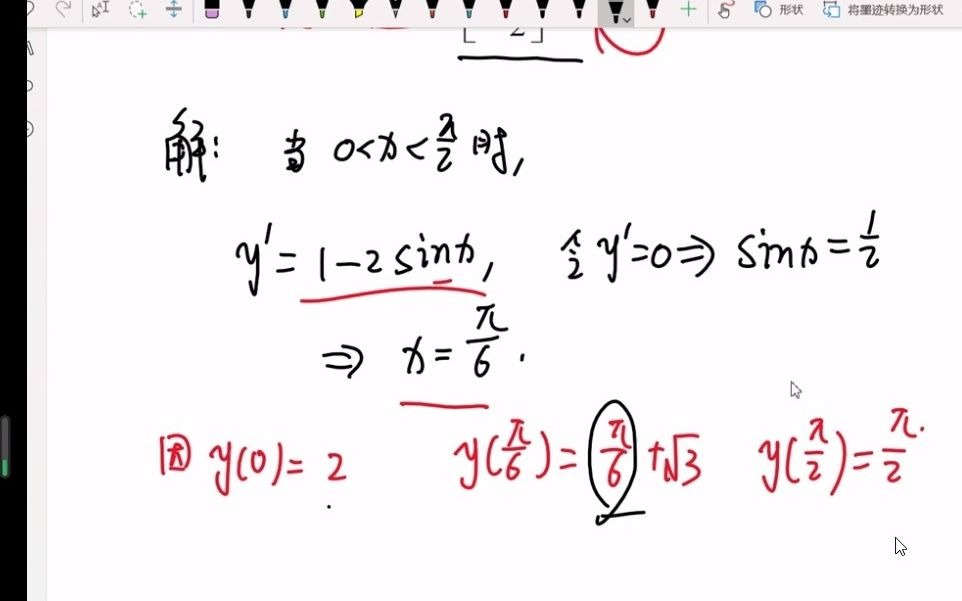 形状 将墨迹转换为形状
解: 当 0<x<π/2 时,
y'=1-2sinx, 令 y'=0⇒ sinx=1/2
⇒ x=π/6.
因 y(0)=2 y(π/6)=π/6+√3 y(π/2)=π/2.